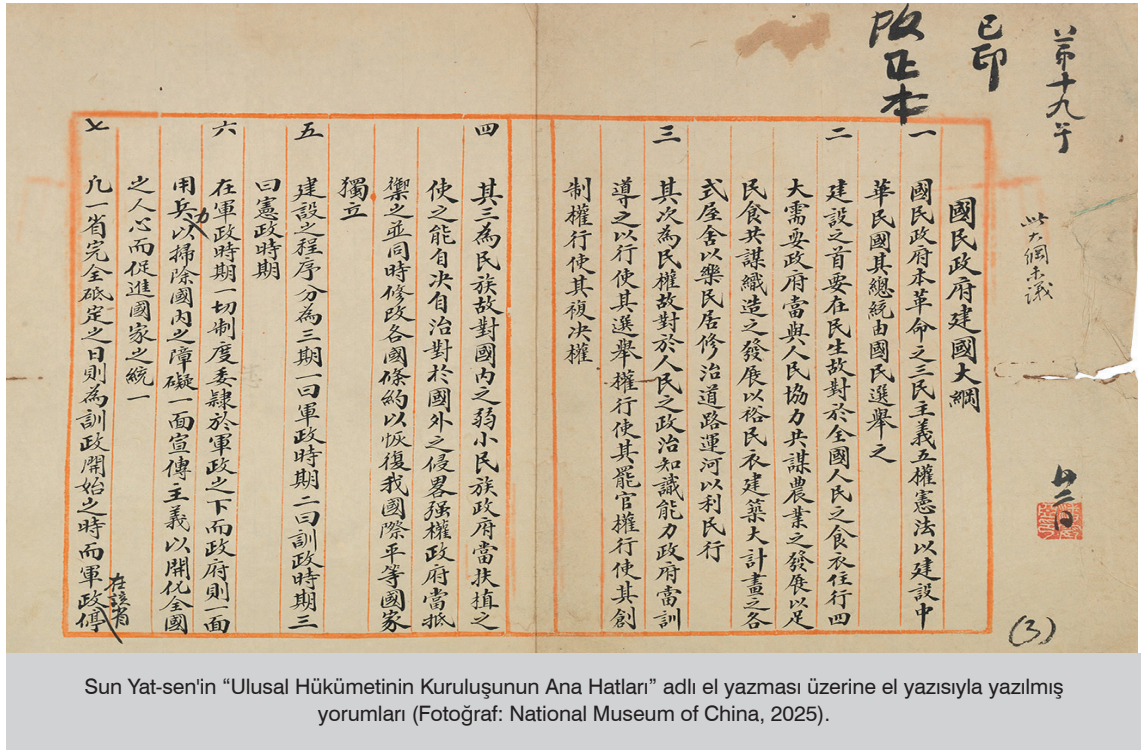 已印
改正本
此大綱未議
國民政府建國大綱
一 國民政府本革命之三民主義五權憲法以建設中
華民國其總統由國民選舉之
二 建設之首要在民生故對於全國人民之食衣住行四
大需要政府當與人民協力共謀農業之發展以足
民食共謀織造之發展以裕民衣建築大計畫之各
式屋舍以樂民居修治道路運河以利民行
三 其次為民權故對於人民之政治知識能力政府當訓
導之以行使其選舉權行使其罷官權行使其創
制權行使其複决權
四 其三為民族故對國內之弱小民族政府當扶植之
使之能自决自治對於國外之侵畧强權政府當抵
禦之並同時修改各國條約以恢復我國際平等國家
獨立
五 建設之程序分為三期一曰軍政時期二曰訓政時期三
曰憲政時期
六 在軍政時期一切制度委隸於軍政之下而政府則一面
用兵力以掃除國內之障礙一面宣傳主義以開化全國
之人心而促進國家之統一
七 凡一省完全砥定之日則為訓政開始之時而軍政停
在該省
(3)
Sun Yat-sen'in “Ulusal Hükümetinin Kuruluşunun Ana Hatları” adlı el yazması üzerine el yazısıyla yazılmış
yorumları (Fotoğraf: National Museum of China, 2025).